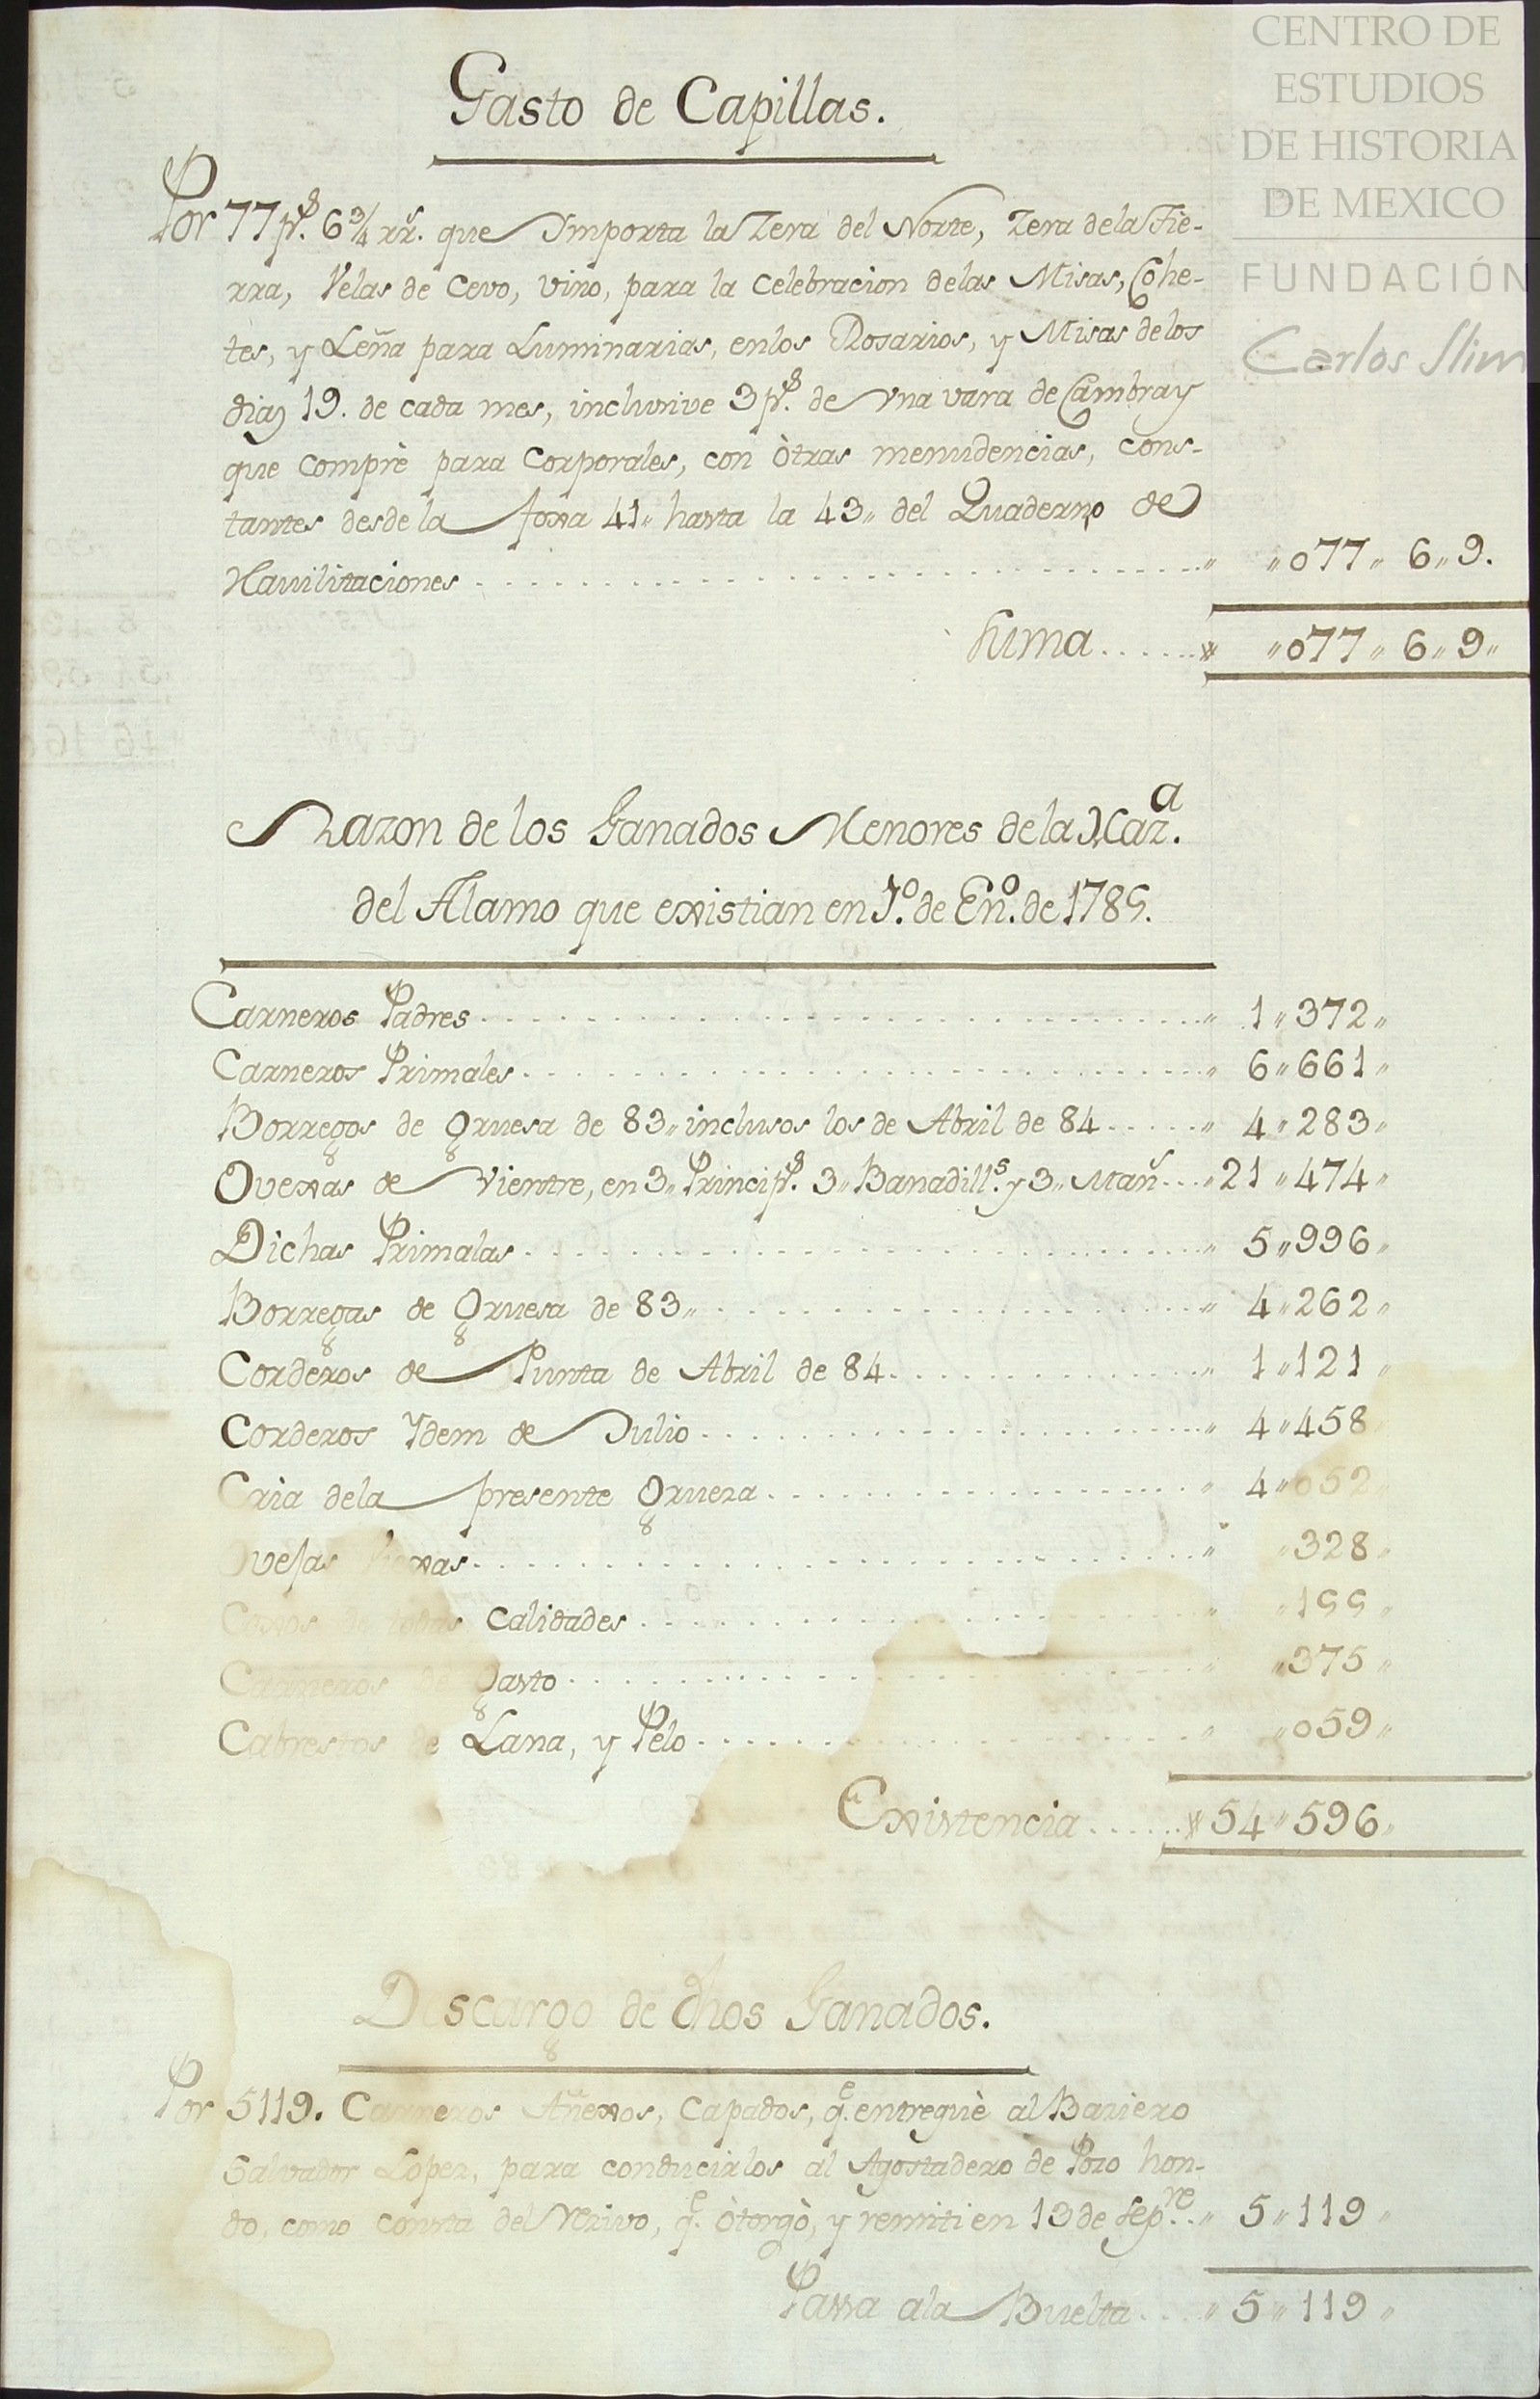 CENTRO DE
ESTUDIOS
DE HISTORIA
DE MEXICO
FUNDACIÓN
Carlos Slim
Gasto de Capillas.
Por 77 p.s 6 3/4 rr.s que Ymporta la Zera del Norte, Zera dela Tie-
rra, Velas de Cevo, vino, para la Celebracion delas Misas, Cohe-
tes, y Leña para Luminarias, enlos Rosarios, y Misas delos
dias 19. de cada mes, inclusive 3 p.s de vna vara de Cambray
que comprè para Corporales, con òtras menudencias, cons-
tantes desde la foxa 41" hasta la 43" del Quaderno de
Havilitaciones - - - " "077" 6" 9.
Suma......" "077" 6" 9"
Razon de los Ganados Menores dela Haz.a
del Alamo que existian en 1.o de En.o de 1785.
Carneros Padres - - - " 1"372"
Carneros Primales - - - " 6"661"
Borregos de Gruesa de 83" inclusos los de Abril de 84 ..... " 4"283"
Ovexas de Vientre, en 3" Princip.s 3" Banadill.s y 3" Mañ.s - - - "21"474"
Dichas Primalas - - - " 5"996"
Borregas de Gruesa de 83" - - - " 4"262"
Corderos de Punta de Abril de 84 - - - " 1"121"
Corderos Ydem de Julio - - - " 4"458
Cria dela presente Grueza - - - " 4"052"
Ovejas Viexas - - - " "328"
Coxos de todas Calidades - - - " "155"
Carneros de Gasto - - - " "375"
Cabrestos de Lana, y Pelo - - - " "059"
Existencia......" 54"596"
Descargo de dhos Ganados.
Por 5119. Carneros Añexos, Capados, q.e entreguè al Baciero
Salvador Lopez, para conducirlos al Agostadero de Pozo hon-
do, como consta del Recivo, q.e òtorgò, y remiti en 13 de Sep.re.." 5"119"
Passa ala Buelta...." 5"119"